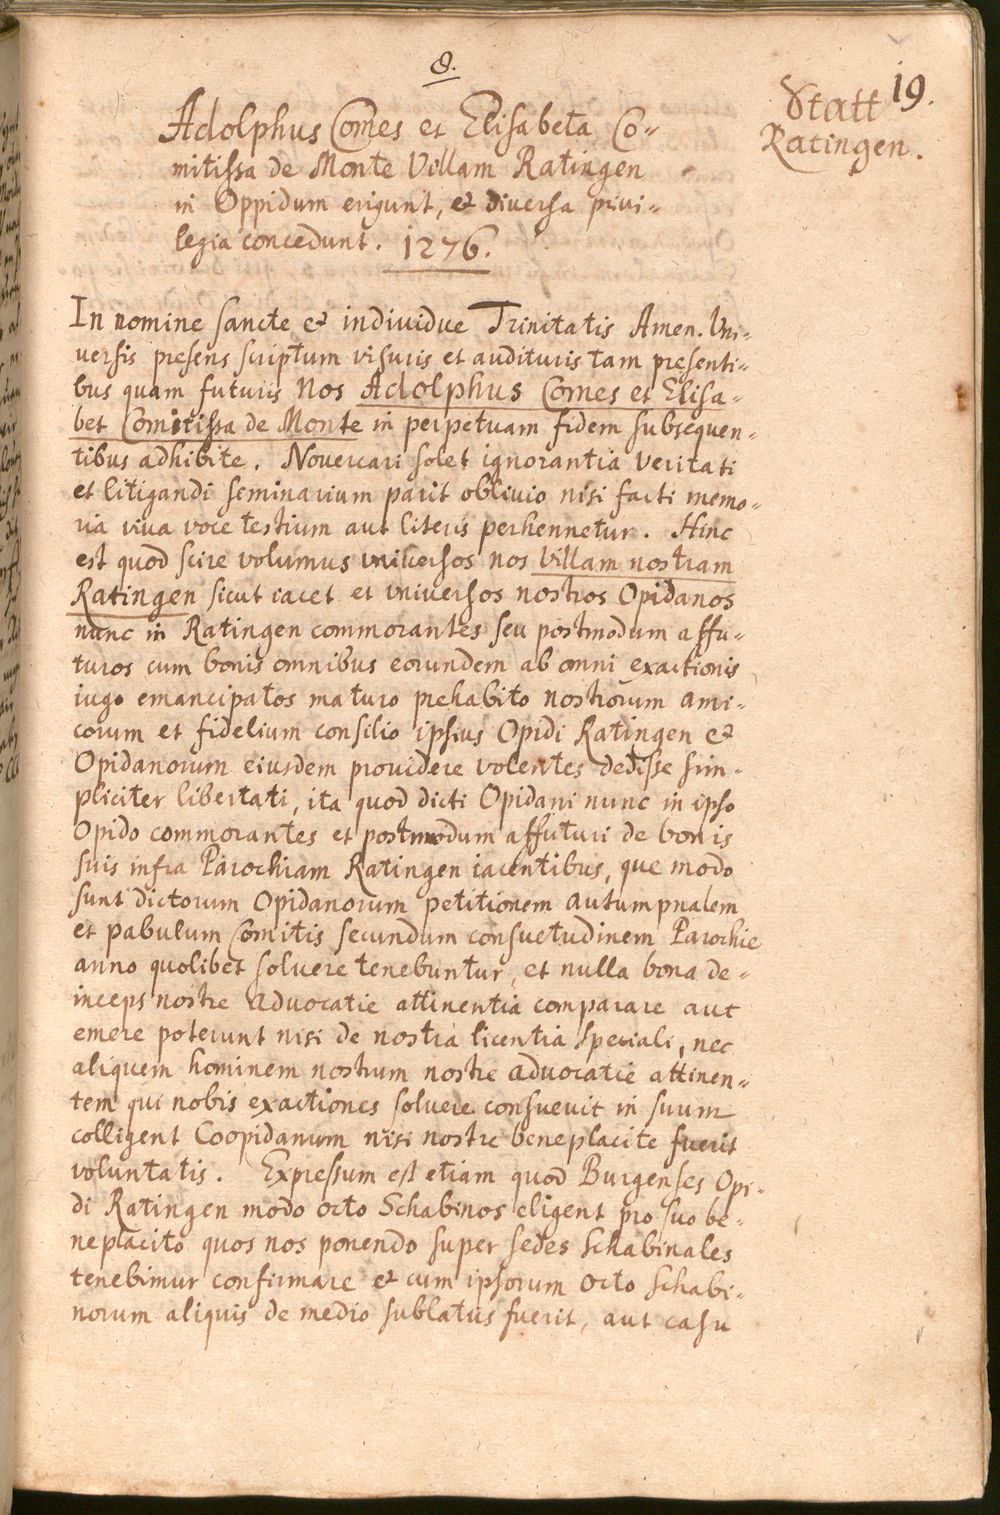 8.
19.
Statt
Ratingen.
Adolphus Comes et Elisabeta Co-
mitissa de Monte Villam Ratingen
in Oppidum erigunt, et diversa privi-
legia concedunt. 1276.
In nomine sancte et individue Trinitatis Amen. Uni-
versis presens scriptum visuris et audituris tam presenti-
bus quam futuris Nos Adolphus Comes et Elisa-
bet Comitissa de Monte in perpetuam fidem subsequen-
tibus adhibite. Novercari solet ignorantia veritati
et litigandi seminarium parit oblivio nisi facti memo-
ria viva voce testium aut literis perhennetur. Hinc
est quod scire volumus universos nos villam nostram
Ratingen sicut iacet et universos nostros Opidanos
nunc in Ratingen commorantes seu postmodum affu-
turos cum bonis omnibus eorundem ab omni exactionis
iugo emancipatos maturo prehabito nostrorum ami-
corum et fidelium consilio ipsius Opidi Ratingen et
Opidanorum eiusdem providere volentes dedisse sim-
pliciter libertati, ita quod dicti Opidani nunc in ipso
Opido commorantes et postmodum affuturi de bonis
suis infra Parochiam Ratingen iacentibus, que modo
sunt dictorum Opidanorum petitionem autumpnalem
et pabulum Comitis secundum consuetudinem Parochie
anno quolibet solvere tenebuntur, et nulla bona de-
inceps nostre advocatie attinentia comparare aut
emere poterunt nisi de nostra licentia speciali, nec
aliquem hominem nostrum nostre advocatie attinen-
tem qui nobis exactiones solvere consuevit in suum
colligent Coopidanum nisi nostre beneplacite fuerit
voluntatis. Expressum est etiam quod Burgenses Opi-
di Ratingen modo octo Schabinos eligent pro suo be-
neplacito quos nos ponendo super sedes schabinales
tenebimur confirmare et cum ipsorum octo schabi-
norum aliquis de medio sublatus fuerit, aut casu